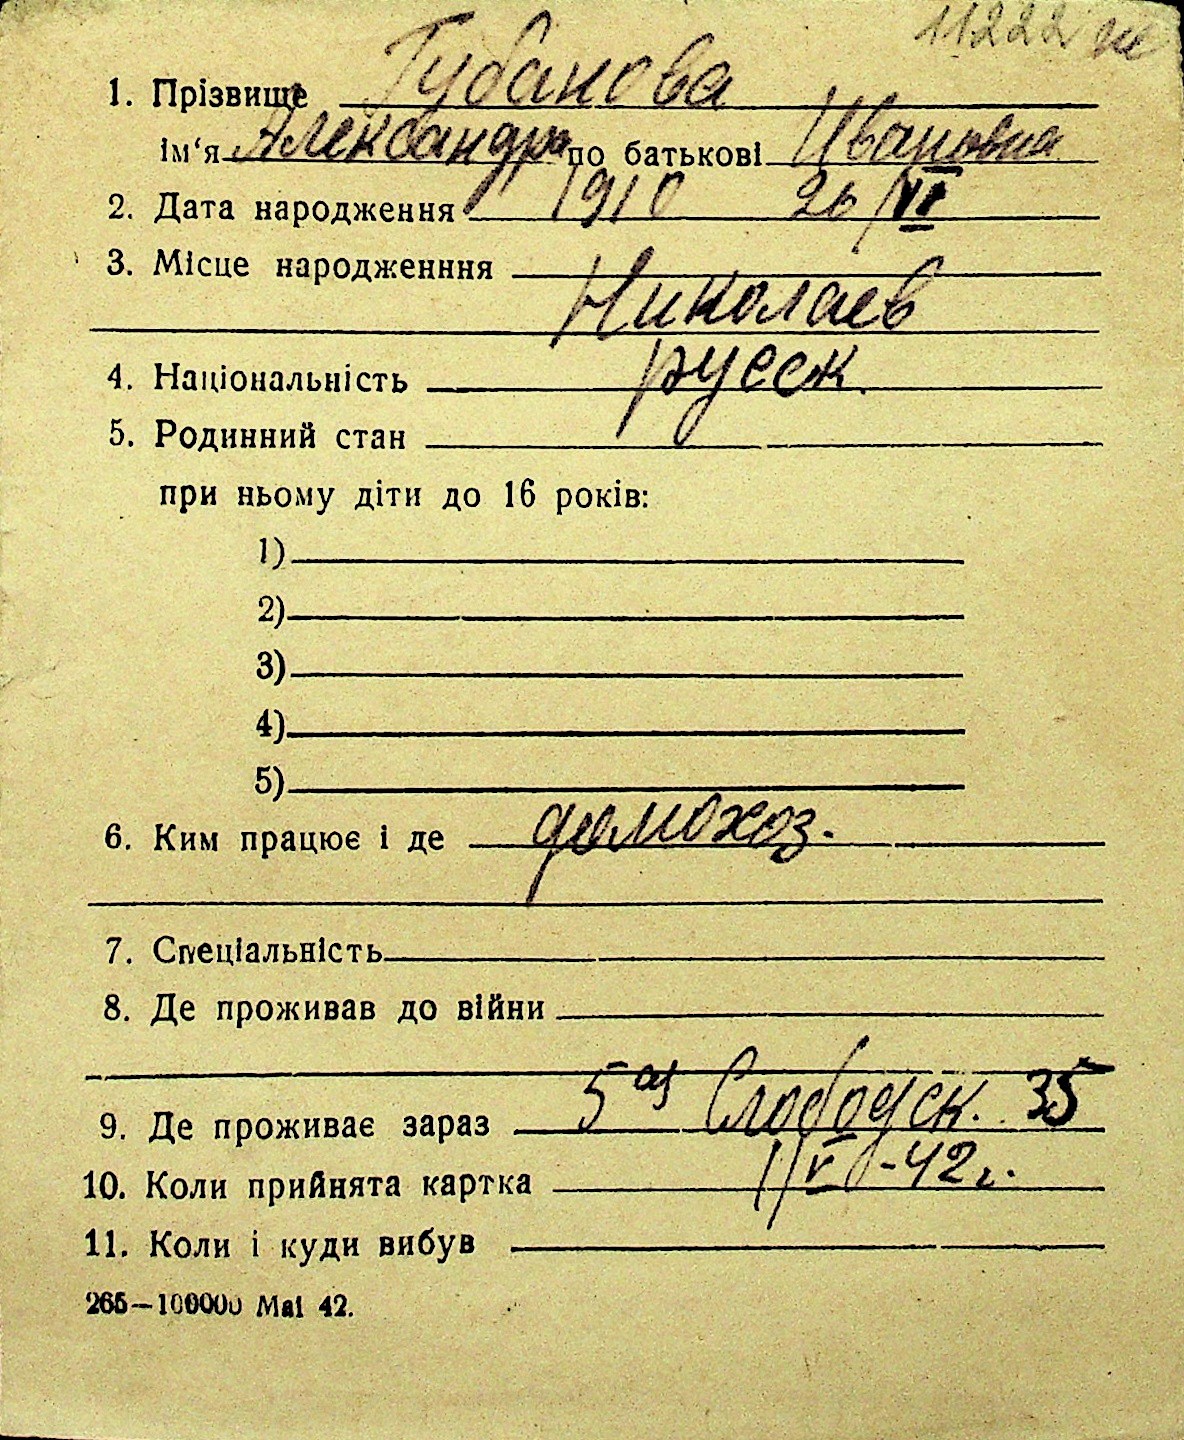 11222
1. Прізвище Губанова
ім'я Александра по батькові Ивановна
2. Дата народження 1910 26/VI
3. Місце народженння
Николаев
4. Національність русск.
5. Родинний стан
при ньому діти до 16 років:
1)
2)
3)
4)
5)
6. Ким працює і де домохоз.
7. Спеціальність
8. Де проживав до війни
9. Де проживає зараз 5ая Слободск. 35
10. Коли прийнята картка 1/V -42 г.
11. Коли і куди вибув
265—100000 Mai 42.